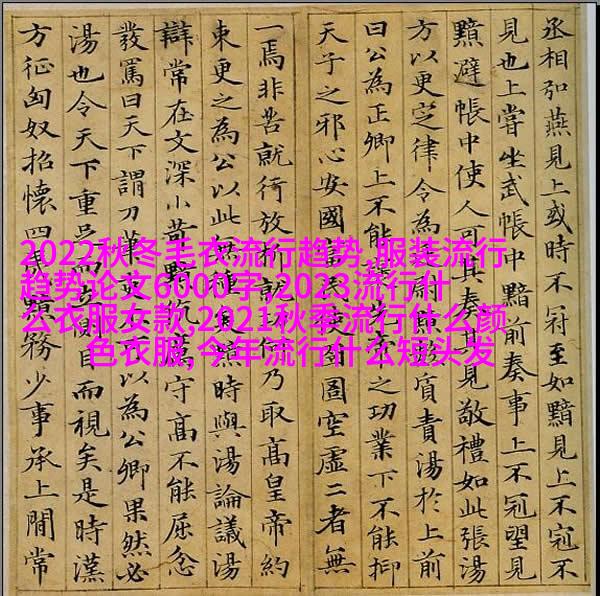 2022秋冬毛衣流行趋势,服装流行
趋势论文6000字,2023流行什
么衣服女款,2021秋季流行什么颜
色衣服,今年流行什么短头发
丞相弘燕見上或時不冠至如黯見上不冠不
見也上嘗坐武帳中黯前奏事上不冠望見
黯避帳中使人可其奏其見敬禮如此張湯
方以更定律令為質責湯於上前
曰公為正卿上不能先帝之功業下不能抑
天子之邪心安國富民使囹圄空虛二者無
一焉非苦就行放析就何乃取高皇帝約
束更之為公以此無種矣黯時與湯論議湯
辯常在文深小苛黯伉守高不能屈忿
發罵曰天下謂刀筆吏不可以為公卿果然必
湯也令天下重足而立側目而視矣是時漢
方征匈奴招懷四夷黯務少事承上間常